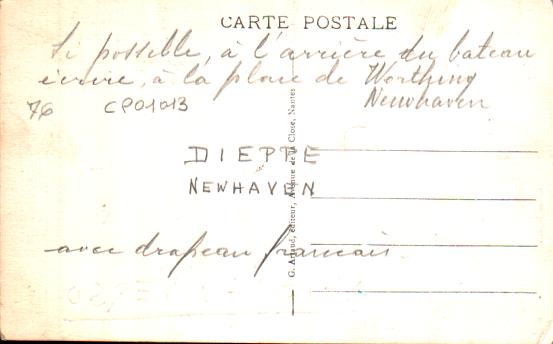 CARTE POSTALE
Si possible, à l'arrière du bateau
écrire, à la place de Worthing
Newhaven
76 CP01013
DIEPPE
NEWHAVEN
avec drapeau francais
G. Artaud, éditeur, Avenue de la Close, Nantes